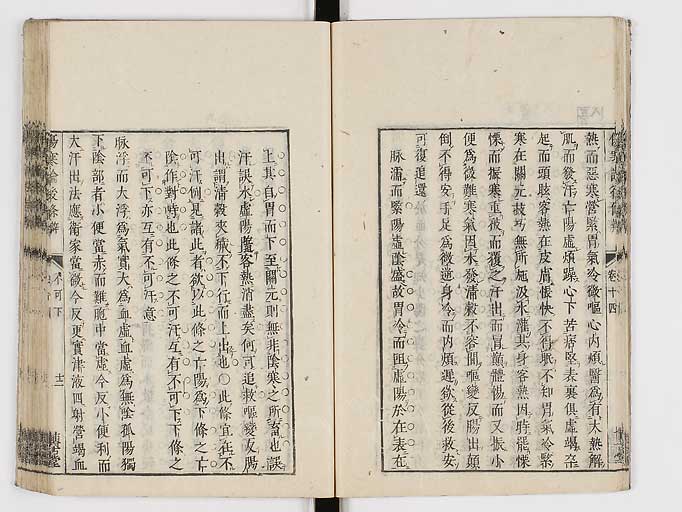 熱而惡寒營緊胃氣冷微嘔心内煩醫為有大熱解
肌而發汗亡陽虛煩躁心下苦痞堅表裏俱虛竭卒
起而頭眩客熱在皮膚悵怏不得眠不知胃氣冷緊
寒在關元技巧無所施汲水灌其身客熱因時罷慄
慄而振寒重被而覆之汗出而冒巔體惕而又振小
便為微難寒氣因水發清穀不容間嘔變反腸出顛
倒不得安手足為微逆身冷而内煩遲欲從後救安
可復追還
脉濡而緊陽虛陰盛故胃冷而阻虛陽於在表在
上其自胃而下至關元則無非陰寒之所畜也誤
汗誤水虛陽客熱消盡矣何可追救嘔變反腸
出謂清穀夾穢不下行而上出也○此條宜在不
可汗例是諸此者欲以此條之亡陽為下條之亡
陰作對峙也此條之不可汗互有不可下下條之
不可下亦互有不可汗意
脉浮而大浮為氣實大為血虛血虛為無陰孤陽獨
下陰部者小便當赤而難胞中當虛今反小便利而
大汗出法應衛家當微今反更實津液四射營竭血
卷十四
不可下